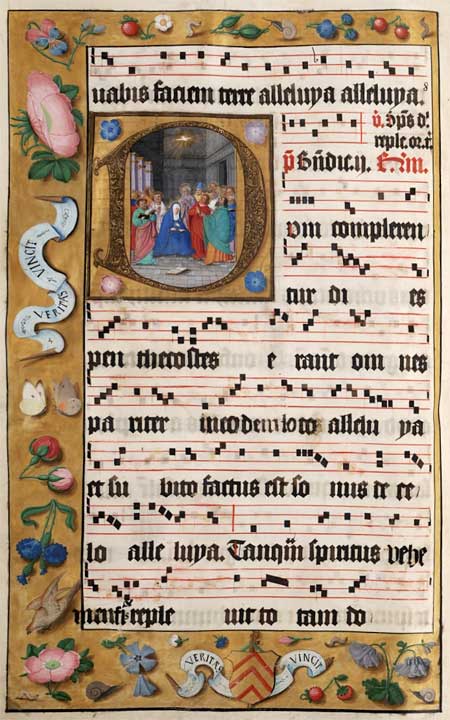 uabis faciem terre alleluya alleluya.
D um compleren
tur di es
pen thecostes e rant om nes
pa riter in eodem loco allelu ya
et su bito factus est so nus de ce
lo alle luya. Tanqm̄ spiritus vehe
reple uit to tam do
VINCIT
VERITAS
VERITAS VINCIT